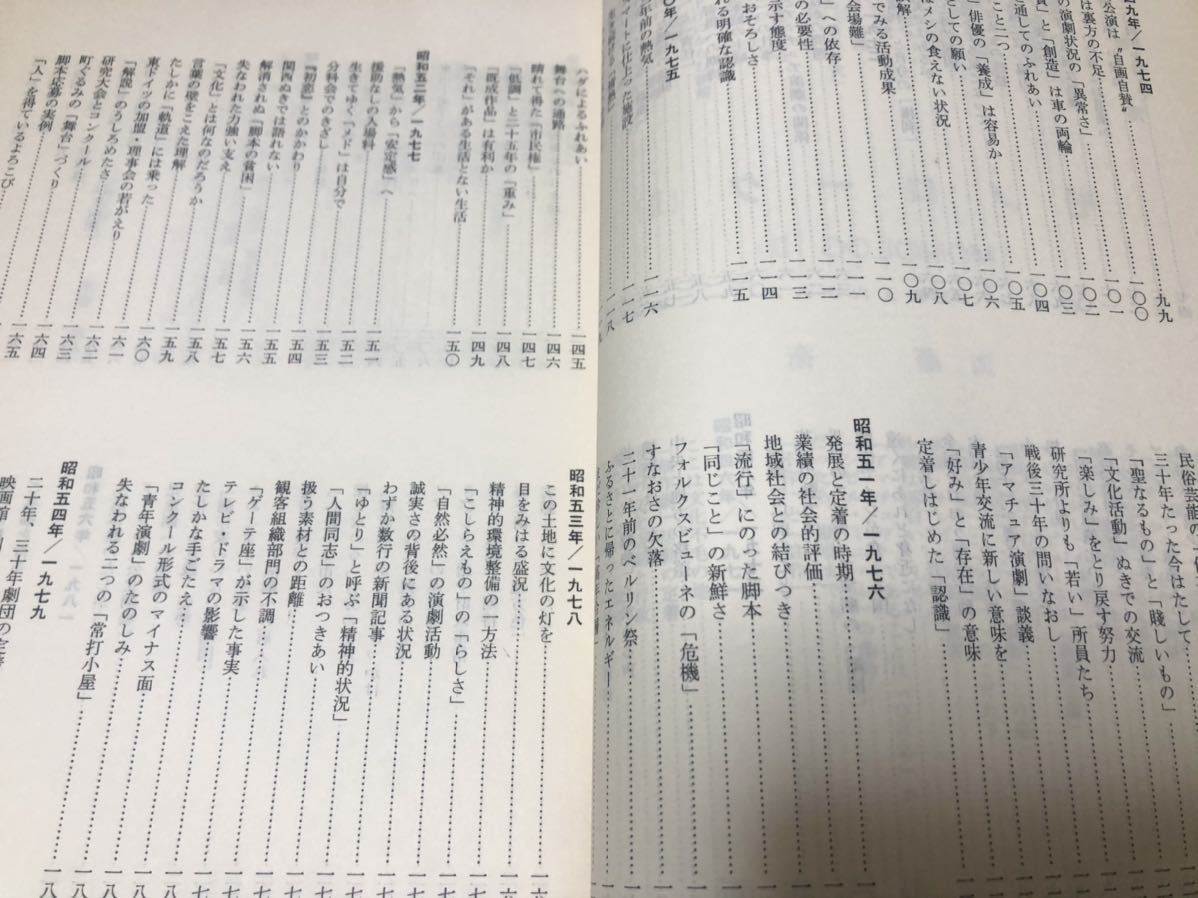 四九年/一九七四
公演は〝自画自賛〟……九九
は裏方の不足……一〇〇
の演劇状況の「異常さ」……一〇一
」と「創造」は車の両輪……一〇二
通してのふれあい……一〇三
こと二つ……一〇四
」俳優の「養成」は容易か……一〇五
としての願い……一〇六
はメシの食えない状況……一〇七
誤解……一〇八
でみる活動成果……一〇九
会場難」……一一〇
」への依存……一一一
の必要性……一一二
示す態度……一一三
おそろしさ……一一四
れる明確な認識……一一五
〇年/一九七五
年前の熱気……一一六
ィートに仕上った施設……一一七
一一八
民俗芸能の
三十年たった今はたして……
「聖なるもの」と「賤しいもの」……
「文化活動」ぬきでの交流……
「楽しみ」をとり戻す努力……
研究所よりも「若い」所員たち……
戦後三十年の問いなおし……
「アマチュア演劇」談義……
青少年交流に新しい意味を……
「好み」と「存在」の意味……
定着しはじめた「認識」……
昭和五一年/一九七六
発展と定着の時期……
業績の社会的評価……
地域社会との結びつき……
「流行」にのった脚本……
「同じこと」の新鮮さ……
フォルクスビューネの「危機」……
すなおさの欠落……
二十一年前のベルリン祭……
ふるさとに帰ったエネルギー……
ハダによるふれあい……一四五
舞台への通路……一四六
晴れて得た「市民権」……一四七
「低調」と二十五年の「重み」……一四八
「既成作品」は有利か……一四九
「それ」がある生活とない生活……一五〇
昭和五二年/一九七七
「熱気」から「安定感」へ……一五一
援助なしの入場料……一五二
生きてゆく「メド」は自分で……一五三
分科会でのきざし……一五四
「初恋」とのかかわり……一五五
関西ぬきでは語れない……一五六
解消されぬ「脚本の貧困」……一五七
失なわれた力強い支え……一五八
「文化」とは何なのだろうか……一五九
言葉の壁をこえた理解……一六〇
たしかに「軌道」には乗った……一六一
東ドイツの加盟・理事会の若がえり……一六二
「解説」のうしろめたさ……一六三
研究大会とコンクール……一六四
町ぐるみの「舞台」づくり……一六五
脚本応募の実例……
「人」を得ているよろこび……
昭和五三年/一九七八
この土地に文化の灯を……
目をみはる盛況……
精神的環境整備の一方法……
「こしらえもの」の「らしさ」……
「自然必然」の演劇活動……
誠実さの背後にある状況……
わずか数行の新聞記事……
「ゆとり」と呼ぶ「精神的状況」……
「人間同志」のおつきあい……
扱う素材との距離……
観客組織部門の不調……
「ゲーテ座」が示した事実……
テレビ・ドラマの影響……
たしかな手ごたえ……
コンクール形式のマイナス面……
「青年演劇」のたのしみ……
失なわれる二つの「常打小屋」……
昭和五四年/一九七九
二十年、三十年劇団の
映画館